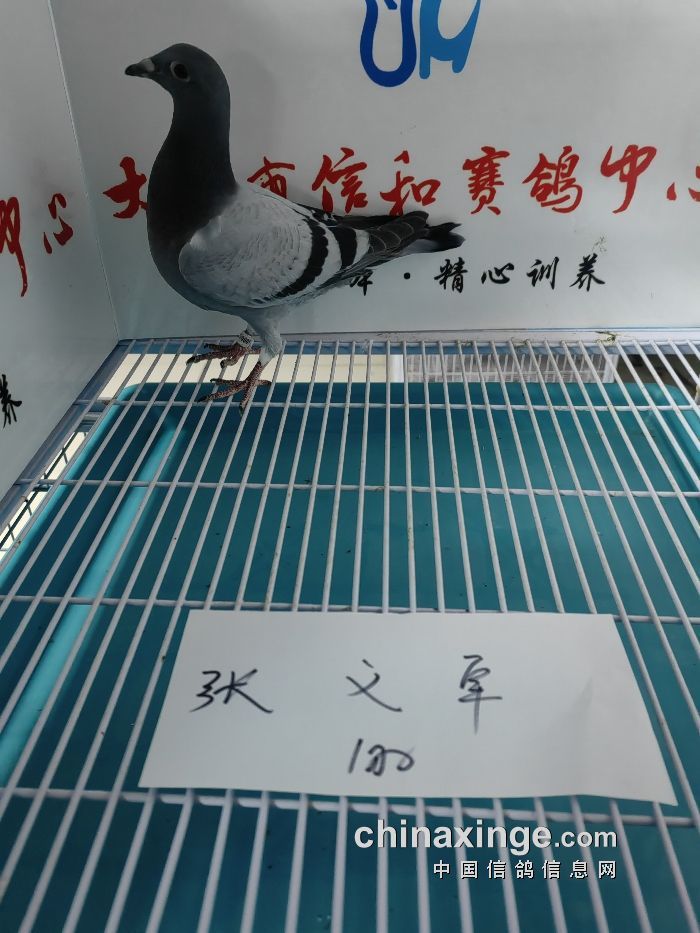 大 市信和赛鸽中心
中心
·精心训养
养
张 文军
100
chinaxinge.com
中国信鸽信息网